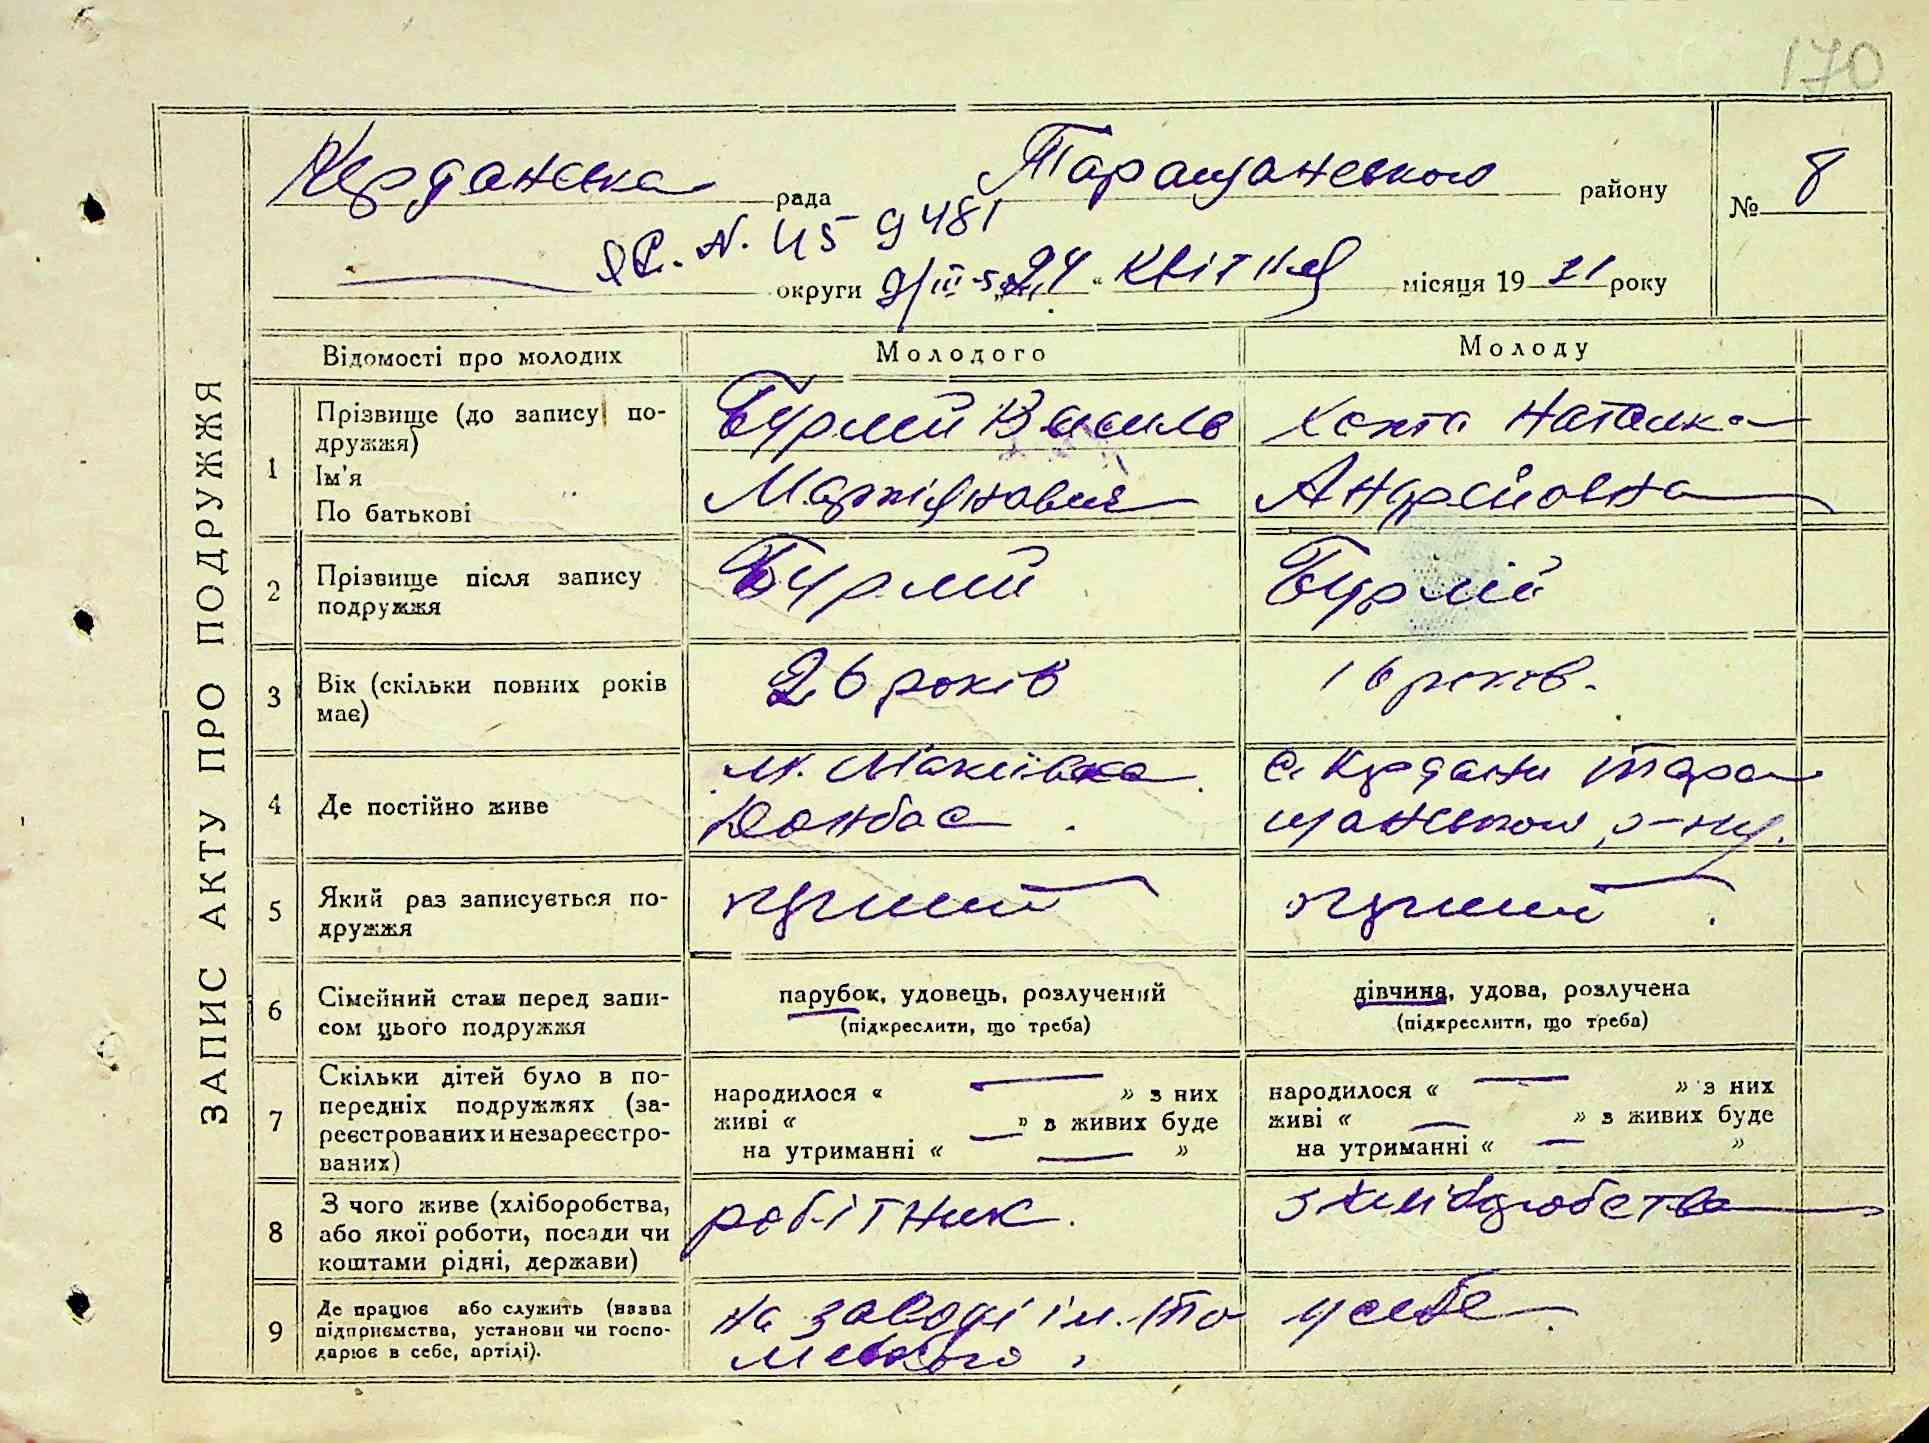 170
ЗАПИС АКТУ ПРО ПОДРУЖЖЯ
Керданська рада Таращанського району № 8
ЯС. N. 459481
округи 9/III-5 „24“ квітня місяця 1931 року
Відомості про молодих Молодого Молоду
1 Прізвище (до запису по-
дружжя)
Ім'я
По батькові
Бурлій Василь
Маркіянович
Хопта Наталка
Андрейовна
2 Прізвище після запису
подружжя
Бурлій
Бурлій
3 Вік (скільки повних років
має)
26 років
16 років.
4 Де постійно живе
м. Макіївка
Донбас.
с. Кердани Тара
щанського р-ну.
5 Який раз записується по-
дружжя
перший
перший.
6 Сімейний стан перед запи-
сом цього подружжя
парубок, удовець, розлучений
(підкреслити, що треба)
дівчина, удова, розлучена
(підкреслити, що треба)
7 Скільки дітей було в по-
передніх подружжях (за-
реєстрованих и незареєстро-
ваних)
народилося « — » з них
живі « — » з живих буде
на утриманні « — »
народилося « — » з них
живі « — » з живих буде
на утриманні « — »
8 З чого живе (хліборобства,
або якої роботи, посади чи
коштами рідні, держави)
робітник.
з хліборобства
9 Де працює або служить (назва
підприємства, установи чи госпо-
дарює в себе, артілі).
на заводі ім. То
мського,
у себе.